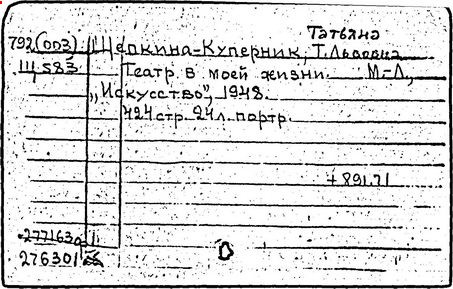 Татьяна
792(003) Щепкина-Куперник, Т. Львовна
Щ583 Театр в моей жизни. М-Л.,
"Искусство", 1948.
424 стр. 24 л. портр.
+891.71
277163
276301